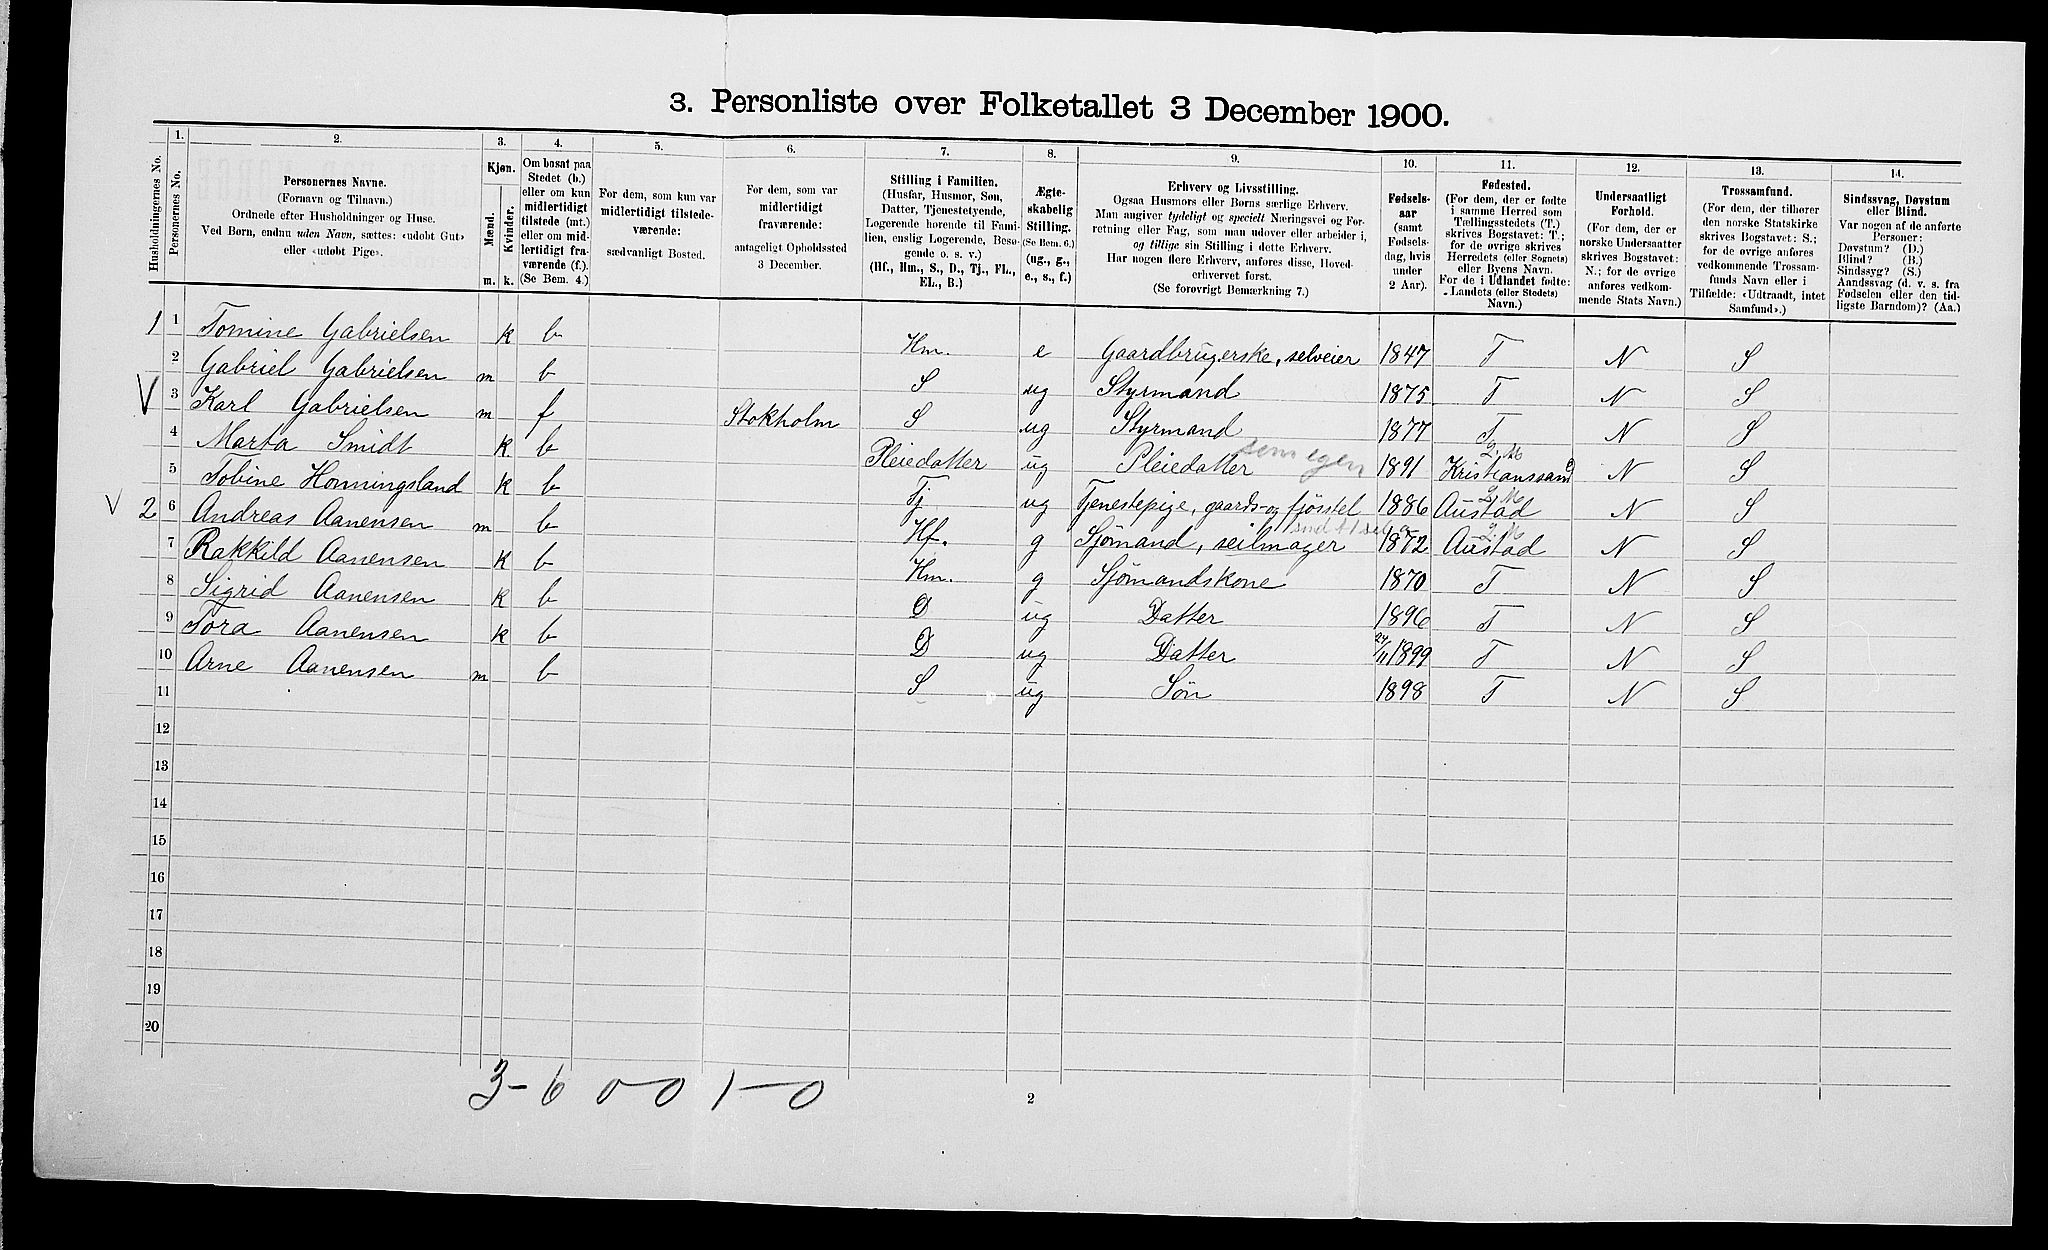 3. Personliste over Folketallet 3 December 1900.
1. 2. 3. 4. 5. 6. 7. 8. 9. 10. 11. 12. 13. 14.
Husholdningernes No.
Personernes No.
Personernes Navne.
(Fornavn og Tilnavn.)
Ordnede efter Husholdninger og Huse.
Ved Børn, endnu uden Navn, sættes: «udøbt Gut»
eller «udøbt Pige».
Kjøn.
Mænd.
Kvinder.
m. k.
Om bosat paa
Stedet (b.)
eller om kun
midlertidigt
tilstede (mt.)
eller om mid-
lertidigt fra-
værende (f.).
(Se Bem. 4.)
For dem, som kun var
midlertidigt tilstede-
værende:
sædvanligt Bosted.
For dem, som var
midlertidigt
fraværende:
antageligt Opholdssted
3 December.
Stilling i Familien.
(Husfar, Husmor, Søn,
Datter, Tjenestetyende,
Logerende hørende til Fami-
lien, enslig Logerende, Besø-
gende o. s. v.)
(Hf., Hm., S., D., Tj., FL.,
EL., B.)
Ægte-
skabelig
Stilling.
(Se Bem. 6.)
(ug., g.,
e., s., f.)
Erhverv og Livsstilling.
Ogsaa Husmors eller Børns særlige Erhverv.
Man angiver tydeligt og specielt Næringsvei og For-
retning eller Fag, som man udøver eller arbeider i,
og tillige sin Stilling i dette Erhverv.
Har nogen flere Erhverv, anføres disse, Hoved-
erhvervet først.
(Se forøvrigt Bemærkning 7.)
Fødsels-
aar
(samt
Fødsels-
dag, hvis
under
2 Aar).
Fødested.
(For dem, der er fødte
i samme Herred som
Tællingsstedets (T.)
skrives Bogstavet: T.;
for de øvrige skrives
Herredets (eller Sognets)
eller Byens Navn.
For de i Udlandet fødte:
Landets (eller Stedets)
Navn.)
Undersaatligt
Forhold.
(For dem, der er
norske Undersaatter
skrives Bogstavet:
N.; for de øvrige
anføres vedkom-
mende Stats Navn.)
Trossamfund.
(For dem, der tilhører
den norske Statskirke
skrives Bogstavet: S.;
for de øvrige anføres
vedkommende Trossam-
funds Navn eller i
Tilfælde: «Udtraadt, intet
Samfund».)
Sindssvag, Døvstum
eller Blind.
Var nogen af de anførte
Personer:
Døvstum? (D.)
Blind? (B.)
Sindssyg? (S.)
Aandssvag (d. v. s. fra
Fødselen eller den tid-
ligste Barndom)? (Aa.)
1 1 Tomine Gabrielsen k b Hm. e Gaardbrugerske, selveier 1847 T N S
2 Gabriel Gabrielsen m b S ug Styrmand 1875 T N S
V 3 Karl Gabrielsen m f Stokholm S ug Styrmand 1877 T N S
4 Marta Smidt k b Pleiedatter ug Pleiedatter som egen 1891 Kristianssand N S
5 Tobine Honningsland k b Tj ug Tjenestepige, gaards- og fjøsstel 1886 Austad N S
V 2 6 Andreas Aanensen m b Hf. g Sjømand, seilmager 1872 Austad N S
7 Rakkild Aanensen k b Hm. g Sjømandskone 1870 T N S
8 Sigrid Aanensen k b D ug Datter 1896 T N S
9 Tora Aanensen k b D ug Datter 24/11 1899 T N S
10 Arne Aanensen m b S ug Søn 1898 T N S
11
12
13
14
15
16
17
18
19
20
3-6 0-0 1-0
2